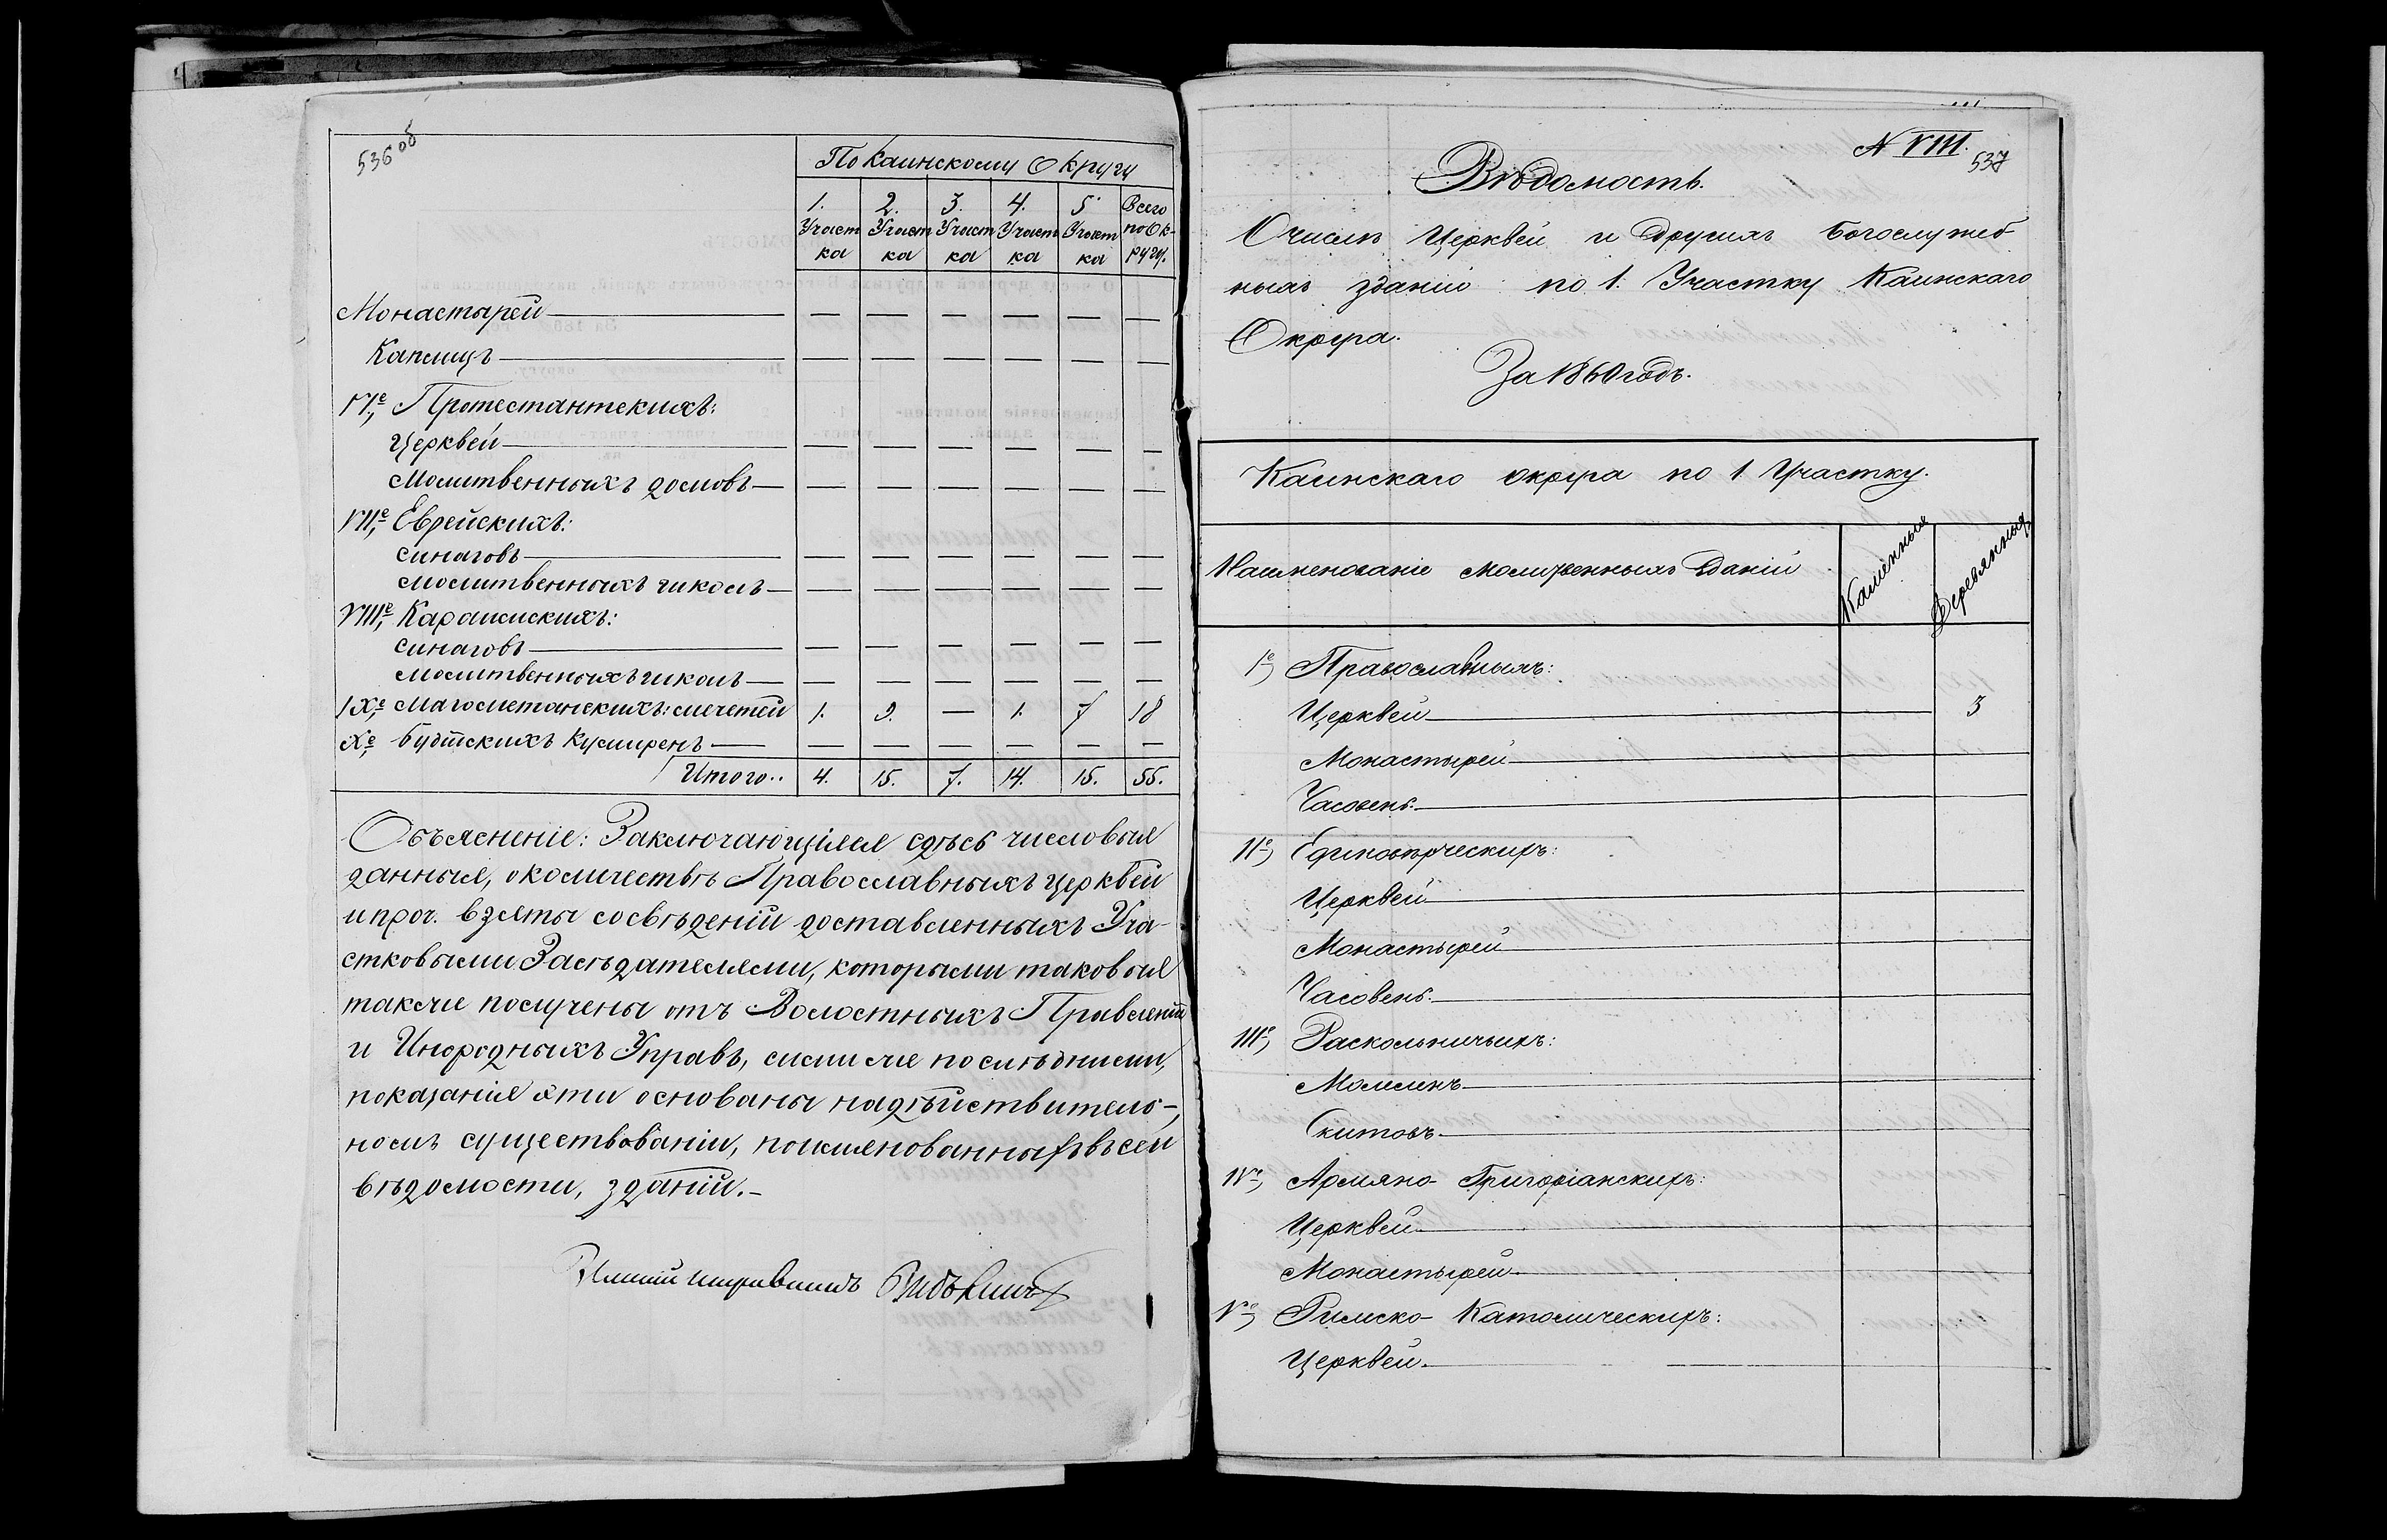 536 об
По Каинскому Округу
1. Участка 2. Участка 3. Участка 4. Участка 5. Участка Всего по Округу.
Монастырей — — — — — —
Каплицъ — — — — — —
VIе, Протестантскихъ:
Церквей — — — — — —
Молитвенныхъ домовъ — — — — — —
VIIе, Еврейскихъ:
Синаговъ — — — — — —
Молитвенныхъ школъ — — — — — —
VIIIе, Караимскихъ:
Синаговъ — — — — — —
Молитвенныхъ школъ — — — — — —
IXе, Магометанскихъ: мечетей 1. 9. — 1. 7 18
Xе, Будтскихъ Кумирень — — — — — —
Итого.. 4. 15. 7. 14. 15. 55.
Объясненіе: Заключающіяся сдѣсь числовыя
данныя, о количествѣ Православныхъ церквей
и проч. взяты со свѣдѣній доставленныхъ Уча-
стковыми Засѣдателями, которыми таковыя
также получены отъ Волостныхъ Правленій
и Инородныхъ Управъ, симиже послѣдними,
показанія эти основаны на дѣйствитель-
номъ существованіи, поименованныхъ въ сей
вѣдомости, зданій.-
N VIII.
537
Вѣдомость.
О числѣ Церквей и другихъ Богослужеб
ныхъ зданій по 1. Участку Каинскаго
Округа.
За 1860 годъ.
Каинскаго округа по 1 Участку.
Наименованіе молитвенныхъ зданій Каменныя Деревянныя
Iе) Православныхъ:
Церквей — 3
Монастырей
Часовень
IIе) Единовѣрческихъ:
Церквей
Монастырей
Часовень
IIIе) Раскольничьихъ:
Молеленъ
Скитовъ
IVе) Армяно-Григоріанскихъ:
Церквей
Монастырей
Vе) Римско-Католическихъ:
Церквей